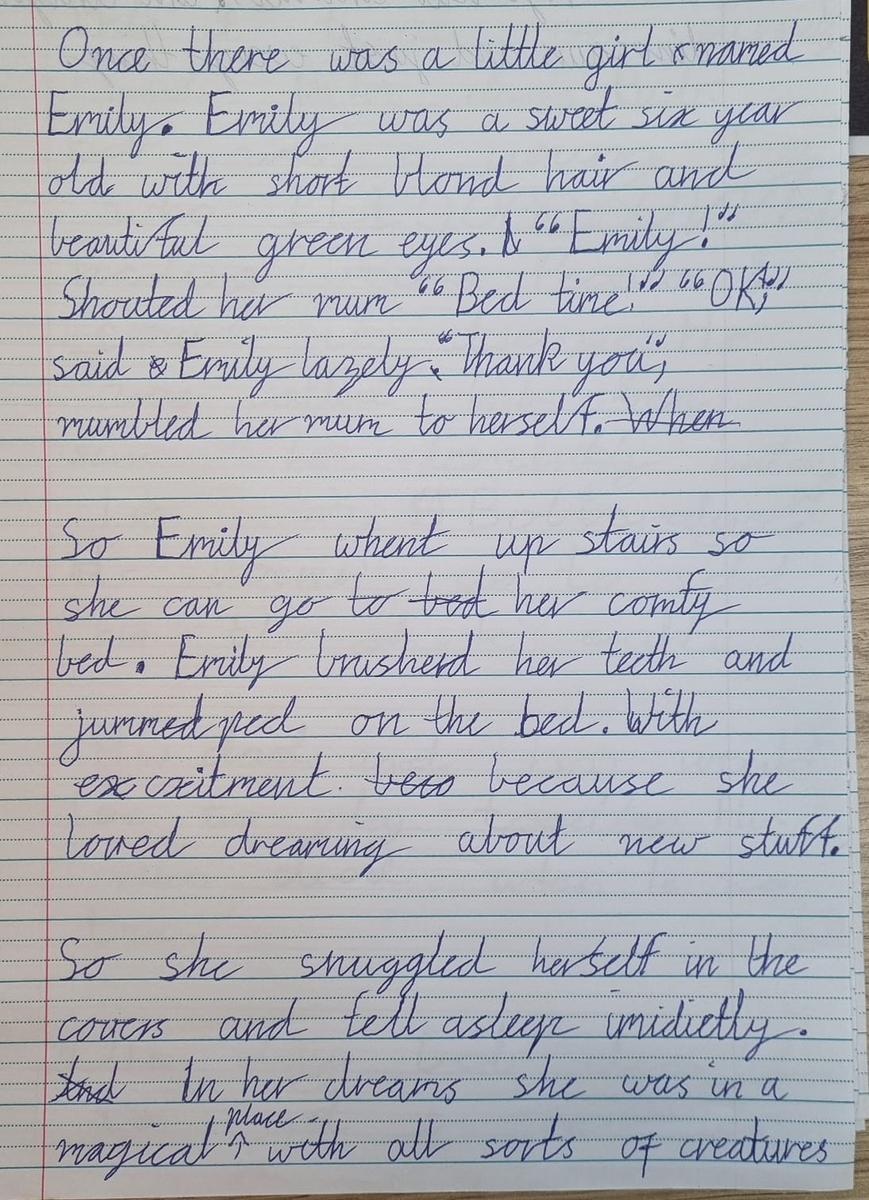 Once there was a little girl named
Emily. Emily was a sweet six year
old with short blond hair and
beautiful green eyes. "Emily!"
Shouted her mum "Bed time!" "OK,"
said Emily lazely. "Thank you",
mumbled her mum to herself. When
So Emily whent up stairs so
she can go to bed her comfy
bed. Emily brusherd her teeth and
jummed ped on the bed. With
ex cxitment. beco because she
loved dreaming about new stuff.
So she snuggled herself in the
covers and fell asleep imidietly.
And In her dreams she was in a
magical place with all sorts of creatures